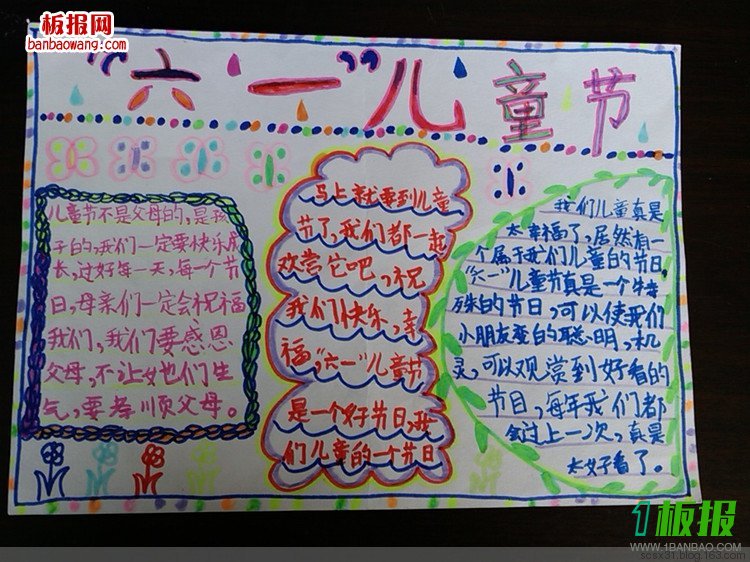 板报网
banbaowang.com
“六一”儿童节
儿童节不是父母的，是孩
子的，我们一定要快乐成
长，过好每一天，每一个节
日，母亲们一定会祝福
我们，我们要感恩
父母，不让她们生
气，要孝顺父母。
马上就要到儿童
节了，我们都一起
欢尝它吧，祝
我们快乐，幸
福，“六一”儿童节
是一个好节日，我
们儿童的一个节日
我们儿童真是
太幸福了，居然有一
个属于我们儿童的节日。
“六一”儿童节真是一个特
殊的节日，可以使我们
小朋友变的聪明，机
灵，可以观赏到好看的
节目，每年我们都
会过上一次，真是
太好看了。
1板报
WWW.1BANBAO.COM
scsx31.blog.163.com